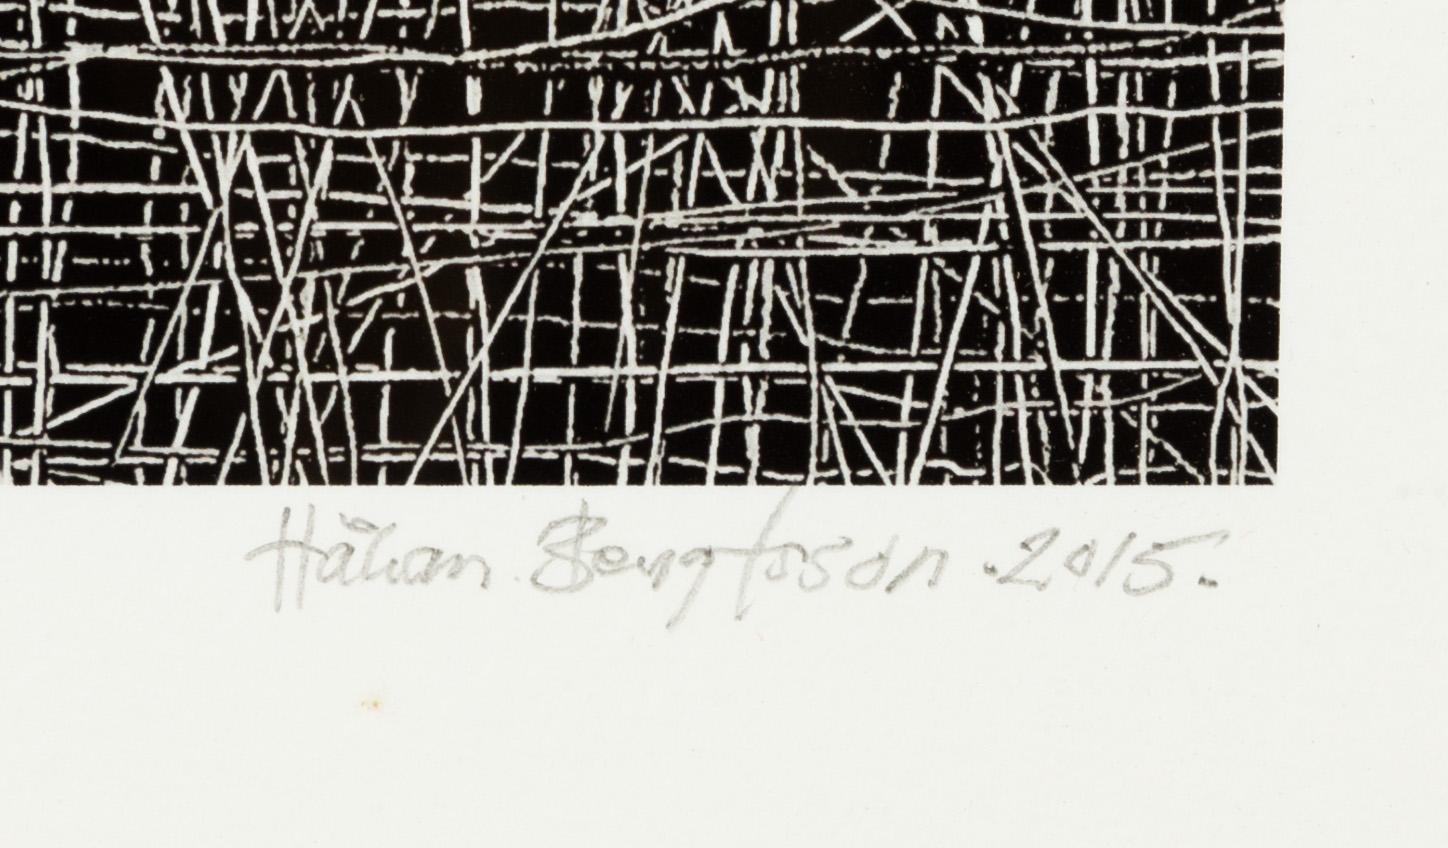 Håkan Bengtsson .2015.